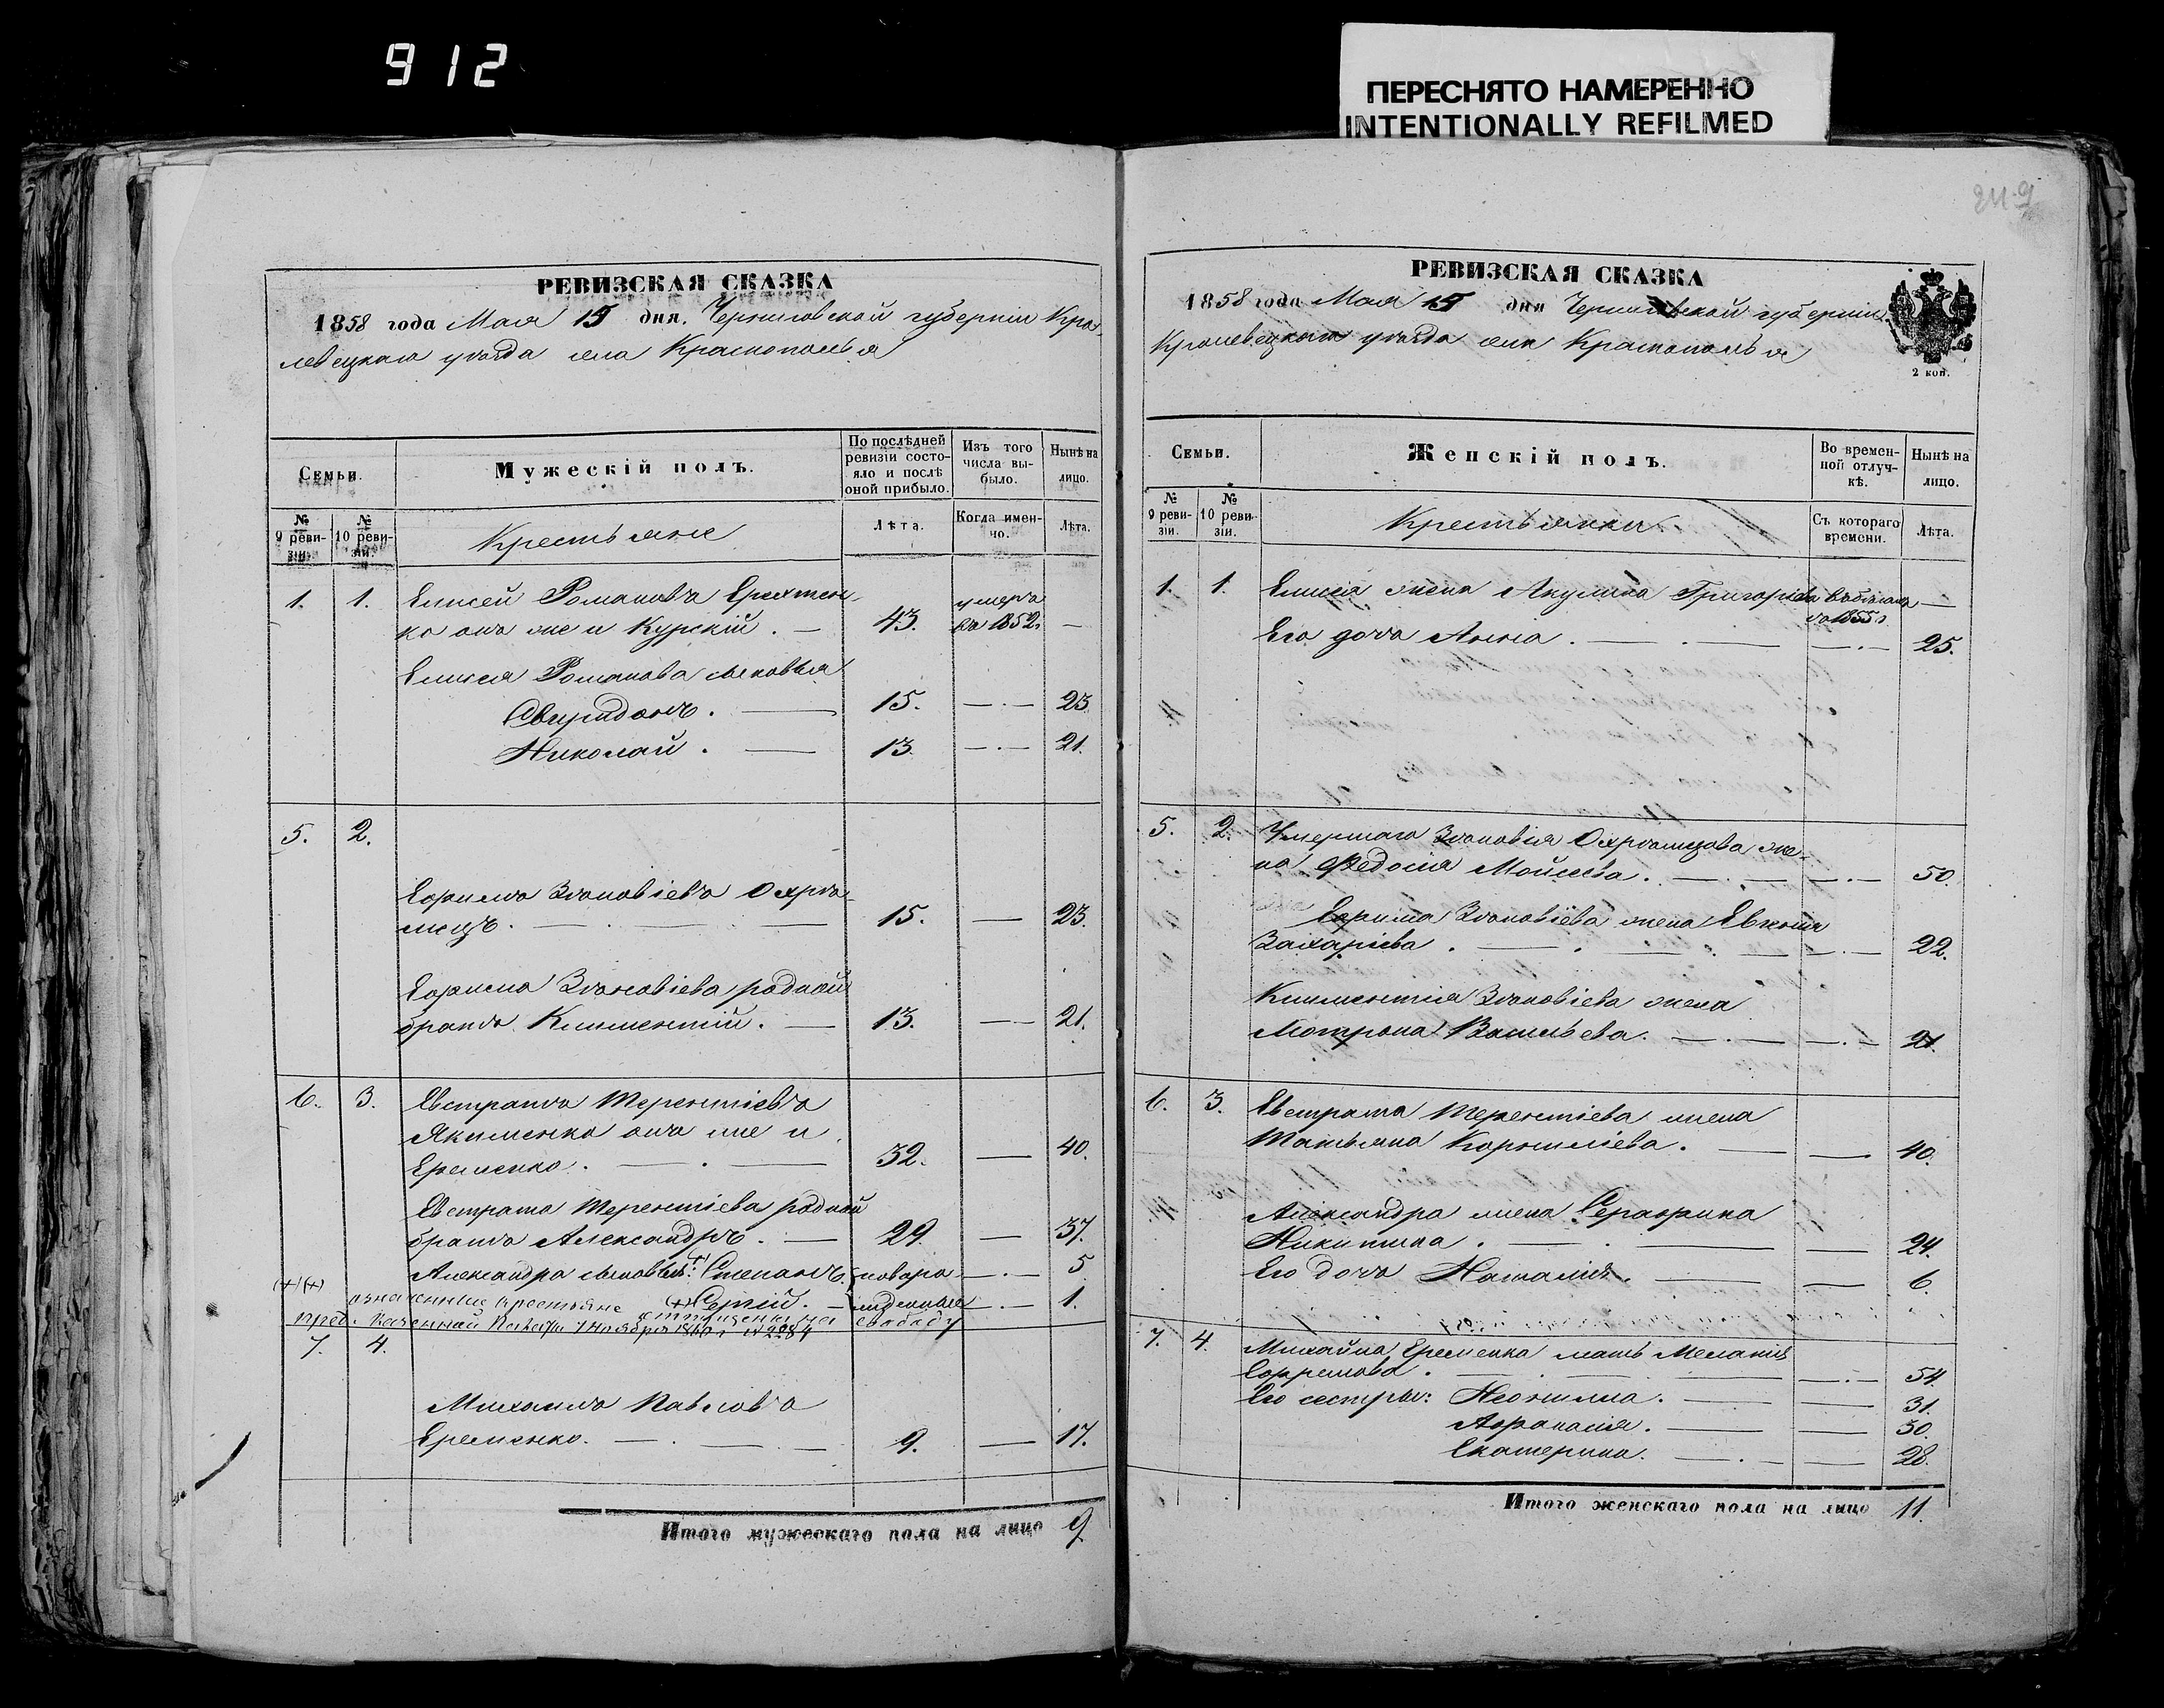 912
ПЕРЕСНЯТО НАМЕРЕННО
INTENTIONALLY REFILMED
РЕВИЗСКАЯ СКАЗКА
1858 года Мая 15 дня. Черниговской губернии Кро-
левецкаго уезда села Краснополья
Семьи.
Мужескій полъ.
По послѣдней ревизіи состояло и послѣ оной прибыло.
Изъ того числа выбыло.
Нынѣ на лицо.
№ 9 ревизіи.
№ 10 ревизіи.
Крестьяне
Лѣта.
Когда именно.
Лѣта.
1. 1. Елисей Романовъ Ерехтен-
ко онъ же и Курскій. — 43. умеръ въ 1852г —
Елисея Романова сыновья
Свиридонъ. — 15. — 23
Николай. — 13. — 21.
5. 2.
Ефимъ Зѣновіевъ Охрѣ-
мецъ. — 15. — 23.
Ефима Зѣновіева родной
братъ Климентій. — 13. — 21.
6. 3. Евстратъ Терентіевъ
Якименко онъ же и
Еременко. — 32. — 40.
Евстрата Терентіева родной
братъ Александръ. — 29. — 37.
Александра сыновья: (+) Степанъ. новоро- — 5
(+)(+) означенные крестьяне (+) Сергій. — жденные — 1.
отпущены на свободу
пред. Казенной Палаты 7 Ноября 1860 г №
7. 4.
Михаилъ Павловъ
Еременко. — 9. — 17.
Итого мужескаго пола на лицо 9
РЕВИЗСКАЯ СКАЗКА
1858 года Мая 15 дня Черниговской губерніи
Кролевецкаго уѣзда села Краснополья
2 коп.
Семьи.
Женскій полъ.
Во временной отлучкѣ.
Нынѣ на лицо.
№ 9 ревизіи.
№ 10 ревизіи.
Крестьянки.
Съ котораго времени.
Лѣта.
1. 1. Елисея жена Акулина Григорьева —
1855г
Его дочь Анна. — 25.
5. 2. Умершаго Зѣновія Охрѣмцова же-
на Федосія Мойсеева. — 50.
Ефима Зѣновіева жена Евгенія
Захаріева. — 22.
Климентія Зѣновіева жена
Мотрона Васильева. — 21.
6. 3. Евстрата Терентіева жена
Татьяна Корниліева. — 40.
Александра жена Серафима
Никитина. — 24.
Его дочь Наталія. — 6.
7. 4. Михайла Еременка мать Меланія
Ефремова. — 54.
Его сестры: Неонилла. — 31.
Афанасія. — 30.
Екатерина. — 28.
Итого женскаго пола на лицо 11.